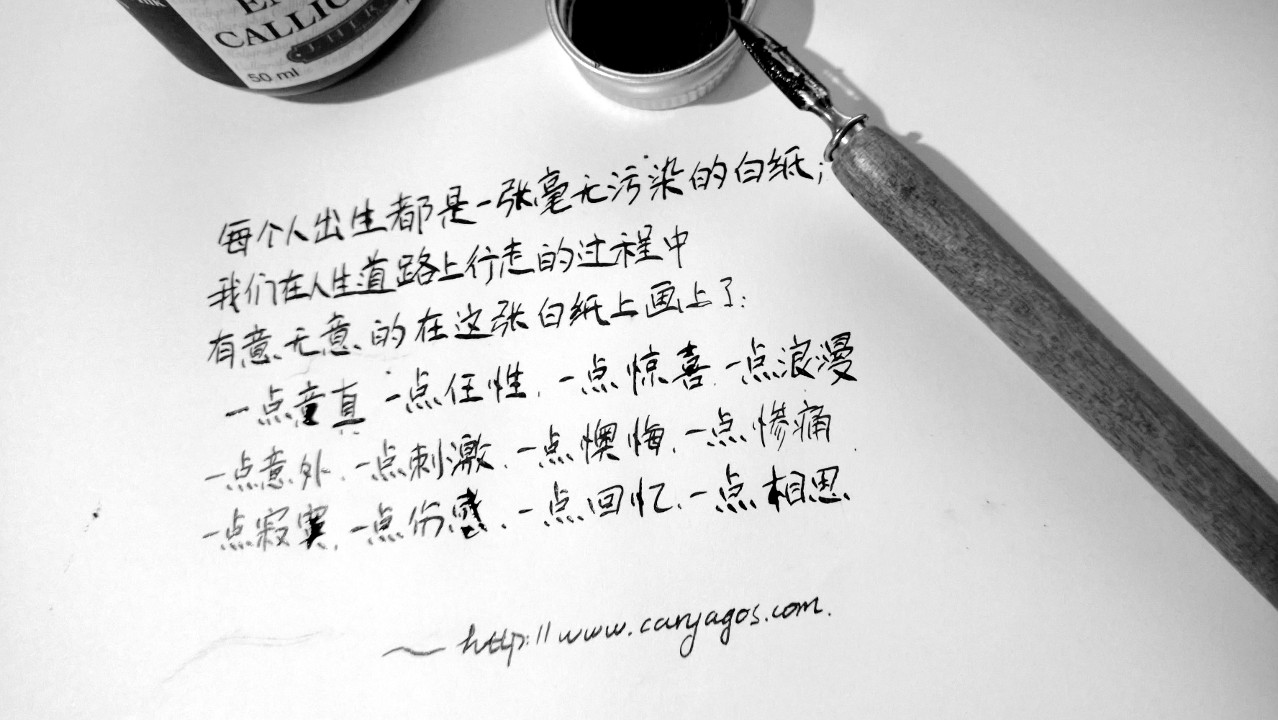 CALLIG
50 ml
每个人出生都是一张毫无污染的白纸;
我们在人生道路上行走的过程中
有意无意的在这张白纸上画上了:
一点童真 一点任性, 一点惊喜, 一点浪漫
一点意外, 一点刺激, 一点懊悔, 一点惨痛
一点寂寞, 一点伤感, 一点回忆, 一点相思
～ http://www.canyagos.com.